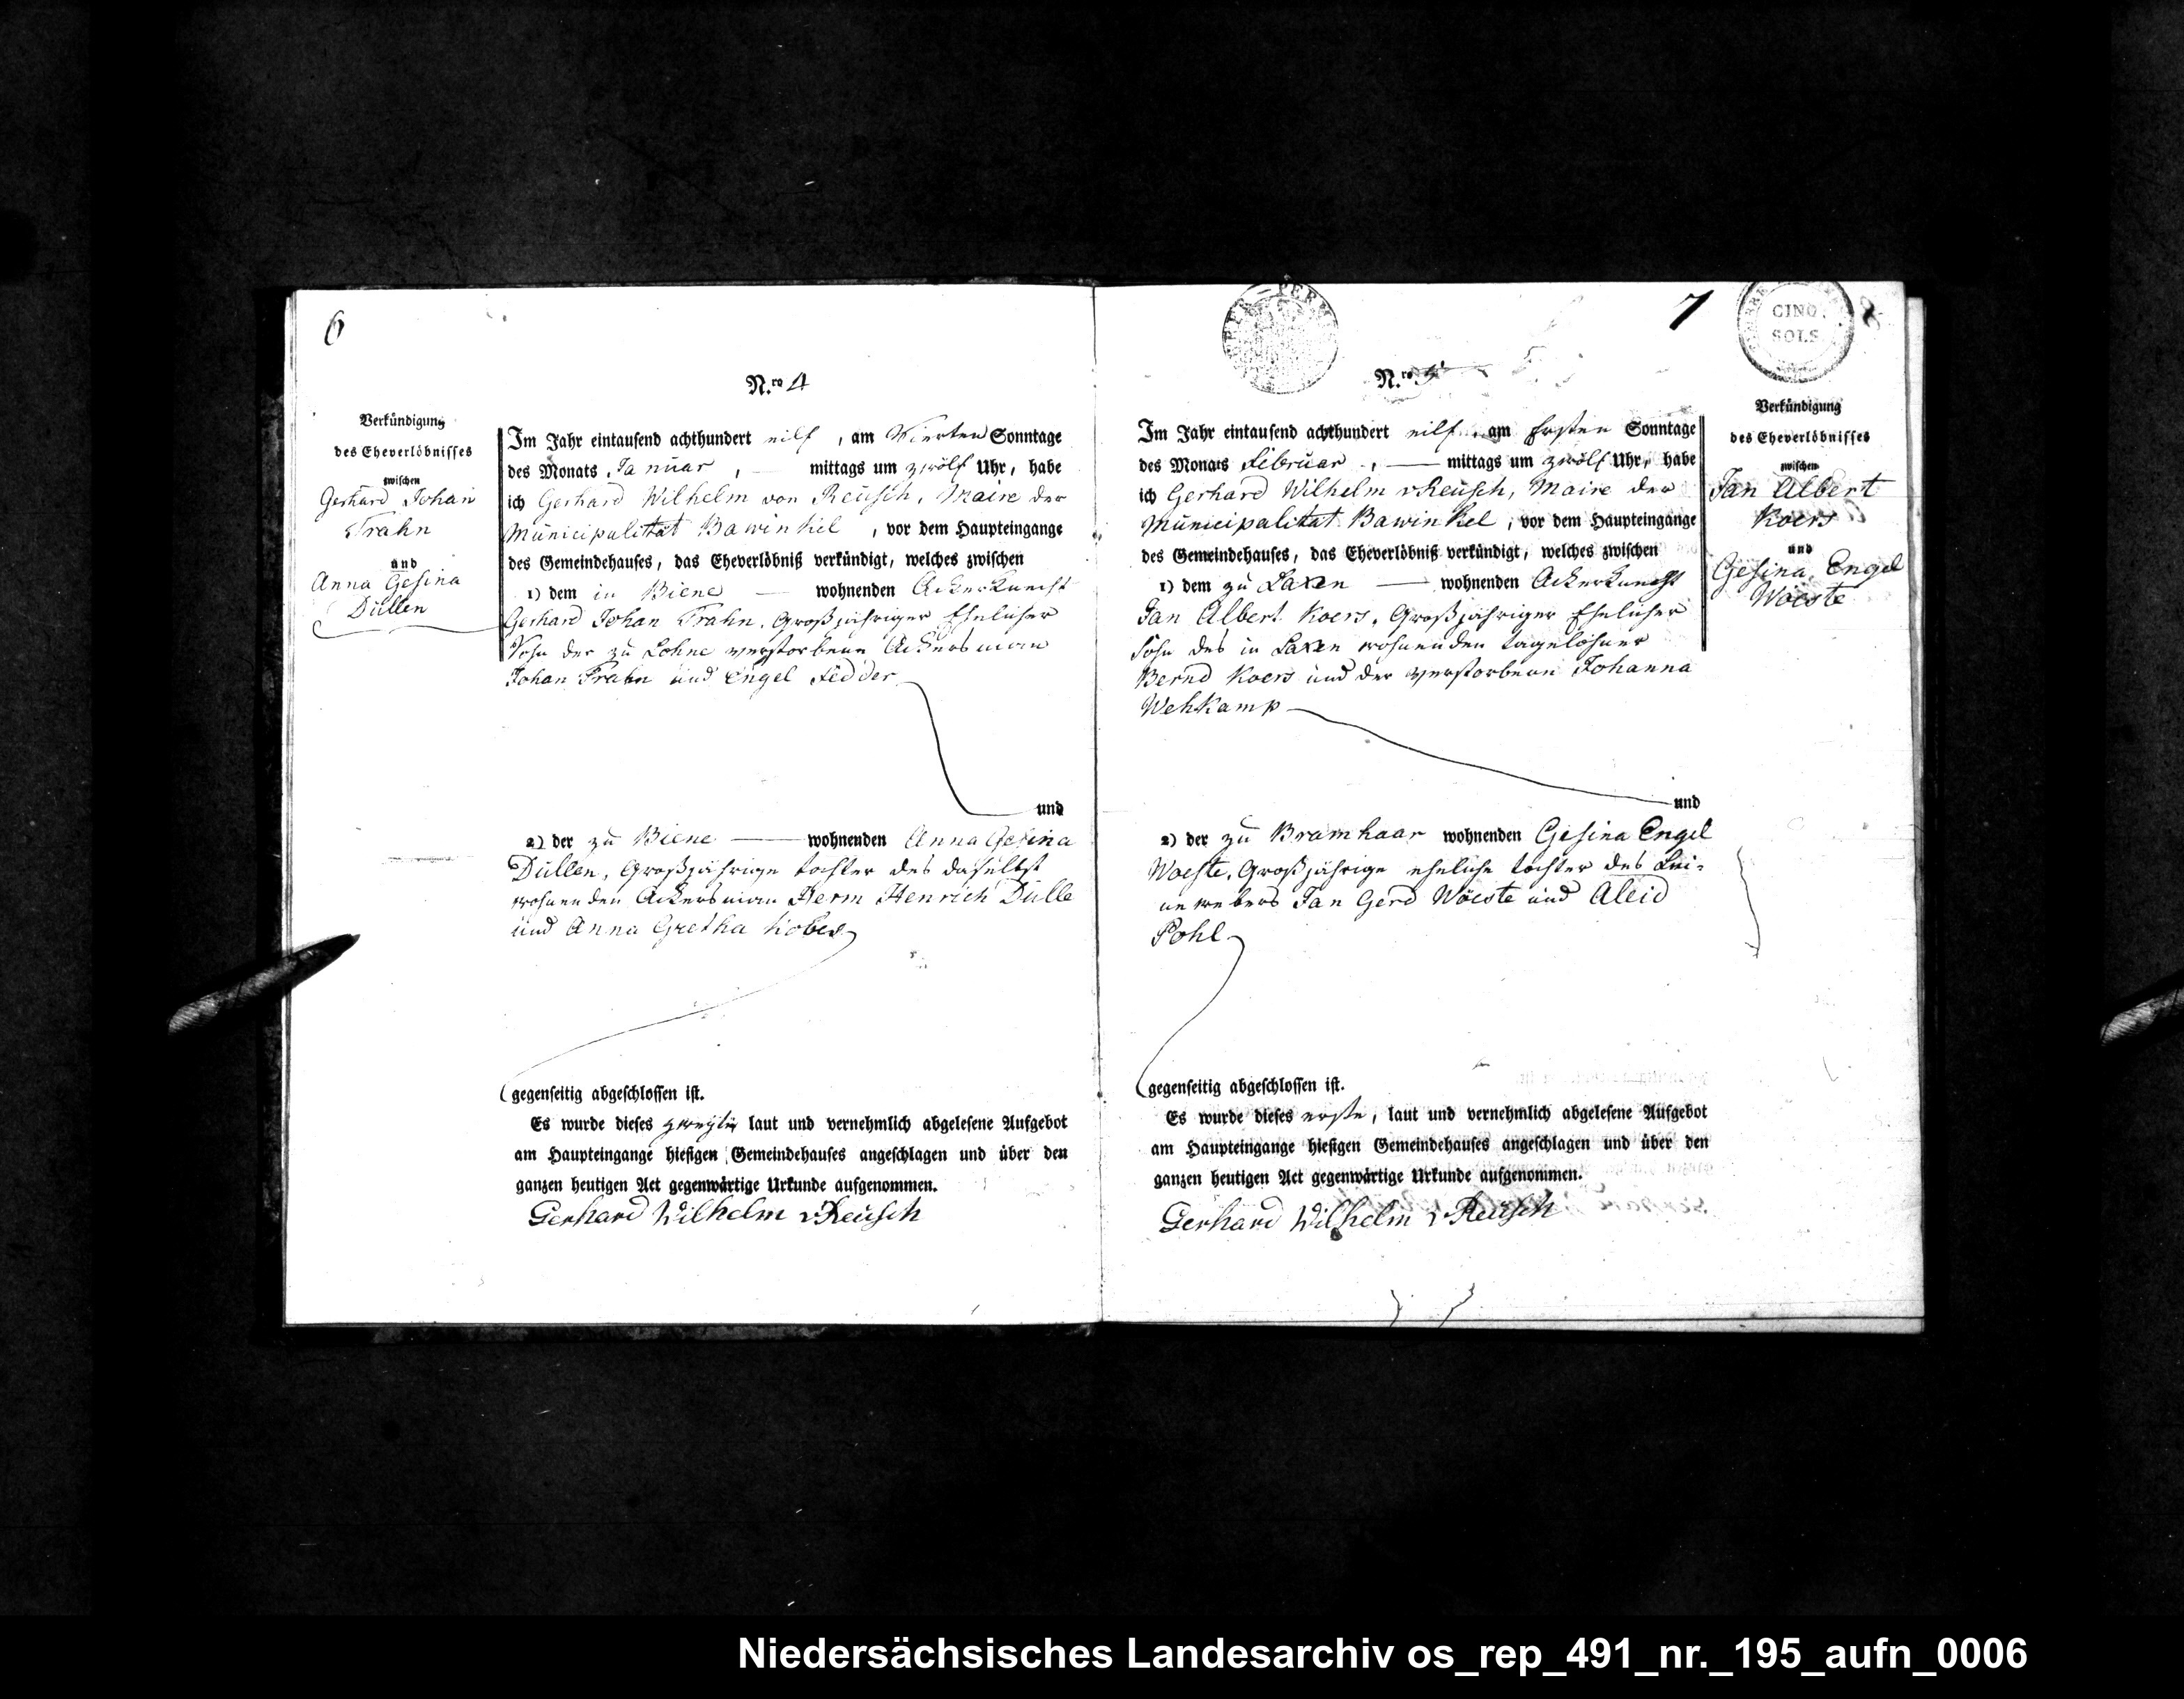 6
N.ro 4
Verkündigung
des Eheverlöbnisses
zwischen
Gerhard Johan
Trahn
und
Anna Gesina
Düllen
Im Jahr eintausend achthundert eilf, am Vierten Sonntage
des Monats Januar, — mittags um zwölf Uhr, habe
ich Gerhard Wilhelm von Reusch, Maire der
Municipalitat Bawinkel, vor dem Haupteingange
des Gemeindehauses, das Eheverlöbniß verkündigt, welches zwischen
1) dem in Biene — wohnenden Ackerknecht
Gerhard Johan Trahn, Großjähriger Ehelicher
Sohn der zu Lohne verstorbene Ackersman
Johan Trahn und Engel Fedder
und
2) der zu Biene — wohnenden Anna Gesina
Düllen, Großjährige tochter des daselbst
wohnenden Ackersman Herm Henrich Dulle
und Anna Gretha
gegenseitig abgeschlossen ist.
Es wurde dieses zweyte laut und vernehmlich abgelesene Aufgebot
am Haupteingange hiesigen Gemeindehauses angeschlagen und über den
ganzen heutigen Act gegenwärtige Urkunde aufgenommen.
Gerhard Wilhelm vReusch
7
CINQ
SOLS
8
N.ro 5
Im Jahr eintausend achthundert eilf, am Ersten Sonntage
des Monats Februar, — mittags um zwölf Uhr, habe
ich Gerhard Wilhelm vReusch, Maire der
Municipalitat Bawinkel, vor dem Haupteingange
des Gemeindehauses, das Eheverlöbniß verkündigt, welches zwischen
1) dem zu Laxen — wohnenden Ackerknecht
Jan Albert Koers, Großjähriger Ehelicher
Sohn des in Laxen wohnenden tagelöhner
Bernd Koers und der verstorbenen Johanna
Wehkamp
und
2) der zu Bramhaar wohnenden Gesina Engel
Woeste, Großjährige eheliche tochter des Lei-
newebers Jan Gerd Wöeste und Aleid
Pohl
gegenseitig abgeschlossen ist.
Es wurde dieses erste, laut und vernehmlich abgelesene Aufgebot
am Haupteingange hiesigen Gemeindehauses angeschlagen und über den
ganzen heutigen Act gegenwärtige Urkunde aufgenommen.
Gerhard Wilhelm v Reusch
Verkündigung
des Eheverlöbnisses
zwischen
Jan Albert
Koers
und
Gesina Engel
Wöeste
Niedersächsisches Landesarchiv os_rep_491_nr._195_aufn_0006